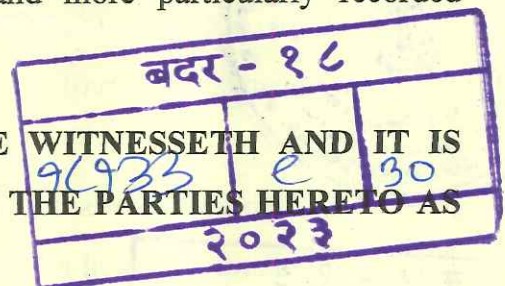 and more particularly recorded
बदर - १८
WITNESSETH AND IT IS
१८१३३ ९ ३०
THE PARTIES HERETO AS
२०२३